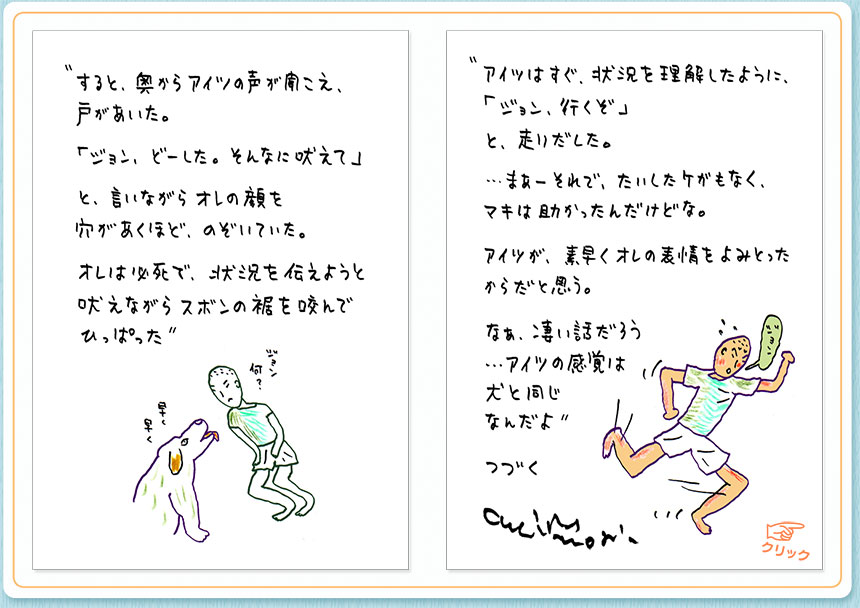 "すると、奥からアイツの声が聞こえ、
戸があいた。
「ジョン、どーした。そんなに吠えて」
と、言いながらオレの顔を
穴があくほど、のぞいていた。
オレは必死で、状況を伝えようと
吠えながらズボンの裾を咬んで
ひっぱった"
ジョン
何?
早く
早く
"アイツはすぐ、状況を理解したように、
「ジョン、行くぞ」
と、走りだした。
…まぁーそれで、たいしたケガもなく、
マキは助かったんだけどな。
アイツが、素早くオレの表情をよみとった
からだと思う。
なぁ、凄い話だろう
…アイツの感覚は
犬と同じ
なんだよ"
ジョン
つづく
クリック